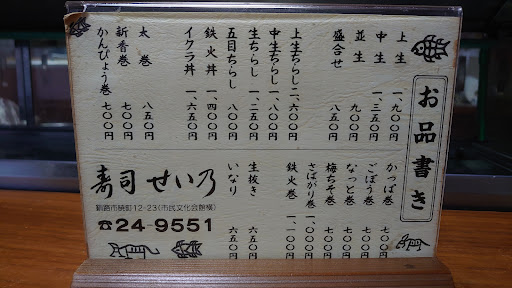 お品書き
上生 一、九〇〇円
中生 一、三五〇円
並生 九〇〇円
盛合せ 八五〇円
上生ちらし 二、六〇〇円
中生ちらし 一、八〇〇円
生ちらし 一、二五〇円
五目ちらし 八〇〇円
鉄火丼 一、四〇〇円
イクラ丼 一、六五〇円
太巻 八五〇円
新香巻 七〇〇円
かんぴょう巻 七〇〇円
かっぱ巻 七〇〇円
ごぼう巻 七〇〇円
なっと巻 七〇〇円
梅ちそ巻 七〇〇円
さばがり巻 一、〇〇〇円
鉄火巻 一、一〇〇円
生抜き 六五〇円
いなり 六五〇円
寿司 せい乃
釧路市暁町12-23(市民文化会館横)
☎24-9551